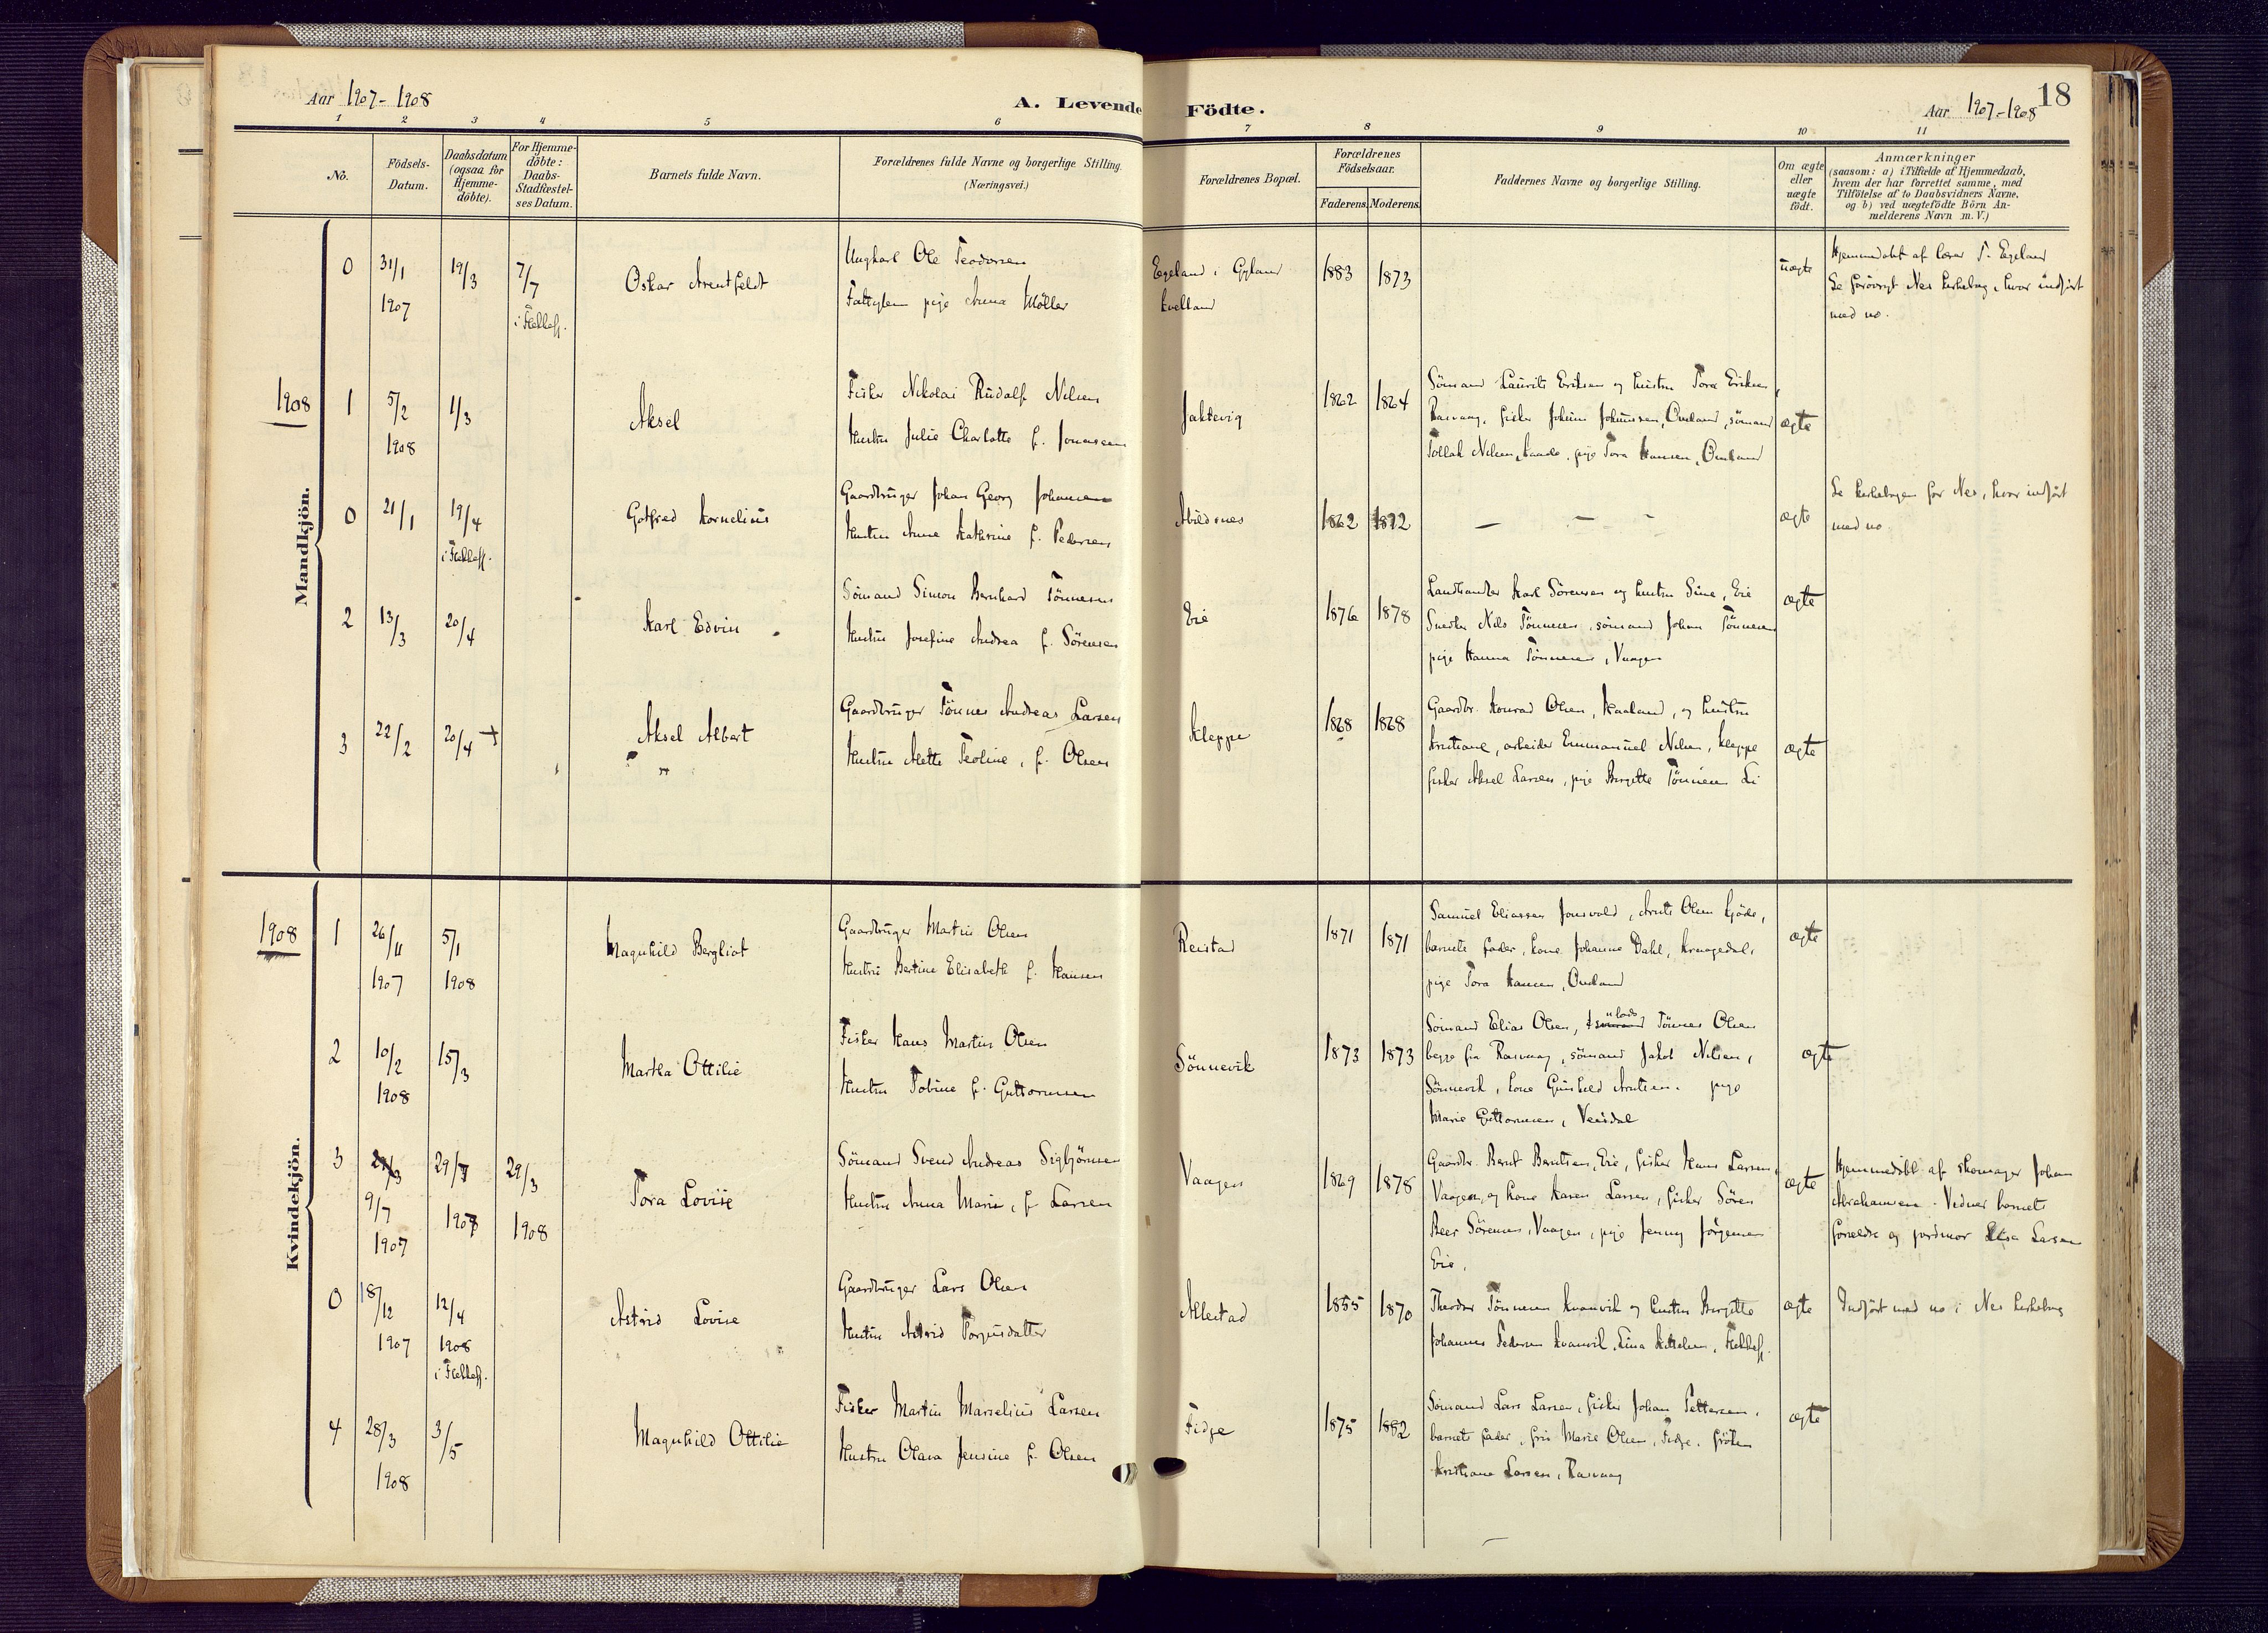 Aar 1907-1908
A. Levende Födte.
Aar 1907-1908
18
1 2 3 4 5 6 7 8 9 10 11
No.
Födsels-
Datum.
Daabsdatum
(ogsaa for
Hjemme-
döbte).
For Hjemme-
döbte:
Daabs-
Stadfæstel-
ses Datum.
Barnets fulde Navn.
Forældrenes fulde Navne og borgerlige Stilling.
(Næringsvei.)
Forældrenes Bopæl.
Forældrenes
Födselsaar.
Faderens. Moderens.
Faddernes Navne og borgerlige Stilling.
Om ægte
eller
uægte
födt.
Anmærkninger
(saasom: a) i Tilfælde af Hjemmedaab,
hvem der har forrettet samme, med
Tilföielse af to Daabsvidners Navne,
og b) ved uægtefödte Börn An-
melderens Navn m. V.)
Mandkjön.
0 31/1 1907 19/3 7/7 i Flekkefj.
Oskar Arentfeldt
Ungkarl Ole Teodorsen
pige Anna Möller
Egeland i Gyland
Kvelland
1883 1873
uægte
Hjemmedöbt af lærer T. Egeland
Se forövrigt Nes kirkebog, hvor indfört
med no.
1908
1 5/2 1908 1/3
Aksel
Fisker Nikolai Rudolf Nilsen
Hustru Julie Charlotte f. Jonassen
Jaktevig
1862 1864
Sömand Laurits Eriksen og hustru Tora Eriksen,
Rasvaag, fisker Johan Johannesen, Omland, sömand
Tollak Nilsen, pige Tora Hansen, Omland
ægte
0 21/1 19/4 i Flekkefj.
Gotfred Kornelius
Gaardbruger Johan Georg Johansen
Hustru Anne Kathrine f. Pedersen
Abildsnes
1862 1872
— — -
ægte
Se kirkebogen for Nes, hvor indfört
med no
2 13/3 20/4
Karl Edvin
Sömand Simon Bernhard Tönnesen
Hustru Josefine Andrea f. Sörensen
Eie
1876 1878
Landhandler Karl Sörensen og hustru Sine, Eie
Snedker Nils Tönnesen, sömand Johan Tönnesen
pige Hanna Tönnesen, Vaagen
ægte
3 22/2 20/4
Aksel Albert
"
Gaardbruger Tönnes Andreas Larsen
Hustru Alette Teoline, f. Olsen
Kleppe
1868 1868
Gaardbr. Konrad Olsen, Haaland, og hustru
Kristiane, arbeider Emmanuel Nilsen, Kleppe
fisker Aksel Larsen, pige Birgitte Tönnesen Li
ægte
Kvindekjön.
1908
1 26/11 1907 5/1 1908
Magnhild Bergliot
Gaardbruger Martin Olsen
Hustru Bertine Elisabeth f. Hansen
Reistad
1871 1871
Samuel Eliassen Jonsvold, Arnts Olsen
barnets fader, kone Johanne Dahl,
pige Tora Hansen, Omland
ægte
2 10/2 1908 15/3
Martha Ottilie
Fisker Hans Martin Olsen
Hustru Tobine f. Guttormsen
Sönnevik
1873 1873
Sömand Elias Olsen, lods Tönnes Olsen
begge fra Rasvaag, sömand Jakob Nilsen,
Sönnevik, kone Gunhild Arntsen. pige
Marie Guttormsen, Veisdal
ægte
3 29/3 9/7 1907 29/7 1907 29/3 1908
Tora Lovise
Sömand Svend Andreas Sigbjörnsen
Hustru Anna Marie, f Larsen
Vaagen
1869 1878
Gaardbr. Bernt Berntsen, Eie, fisker Hans Larsen,
Vaagen, og kone Karen Larsen, fisker Sören
Beer Sörensen, Vaagen, pige Jenny Jörgensen
Eie.
ægte
Hjemmedöbt af skomager Johan
Abrahamsen. Vidner barnets
forældre og jordmor Elisa Larsen
0 18/12 1907 12/4 1908 i Flekkefj.
Astrid Lovise
Gaardbruger Lars Olsen
Hustru Astrid Torgusdatter
Allestad
1855 1870
Theodor Tönnesen Kvanvik og hustru Birgitte
Johannes Pedersen Kvanvik, Lina Kittelsen, Flekkefj.
ægte
Indfört med no i Nes kirkebog
4 28/3 1908 3/5
Magnhild Ottilie
Fisker Martin Marselius Larsen
Hustru Olava Jensine f. Olsen
Fidje
1875 1882
Sömand Lars Larsen, fisker Johan Pettersen,
barnets fader, fru Marie Olsen, Fidje, fröken
Kristiane Larsen, Rasvaag
ægte